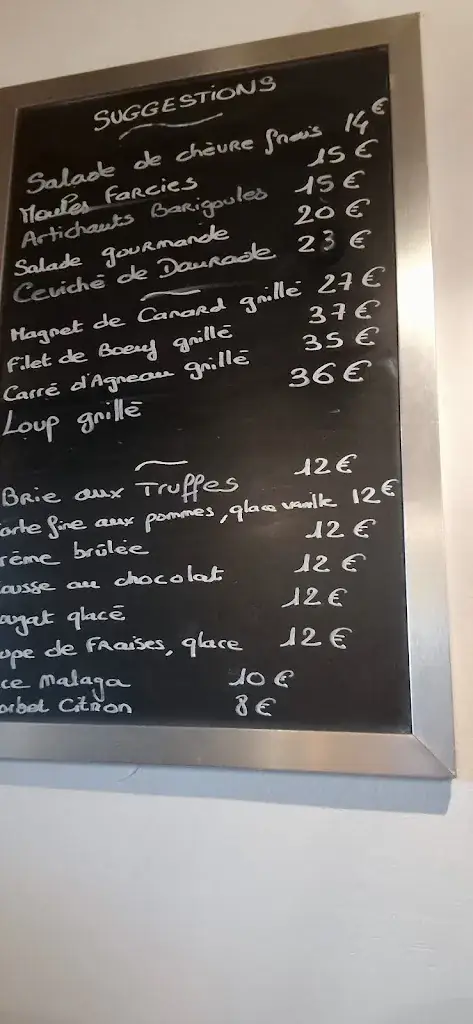 SUGGESTIONS
Salade de chèvre frais 14€
Moules Farcies 15€
Artichauts Barigoules 15€
Salade gourmande 20€
Ceviche de Daurade 23€
Magret de Canard grillé 27€
Filet de Boeuf grillé 37€
Carré d'Agneau grillé 35€
Loup grillé 36€
Brie aux Truffes 12€
arte fine aux pommes, glace vanille 12€
rème brûlée 12€
ousse au chocolat 12€
ougat glacé 12€
upe de FRaises, glace 12€
ce Malaga 10€
orbet Citron 8€